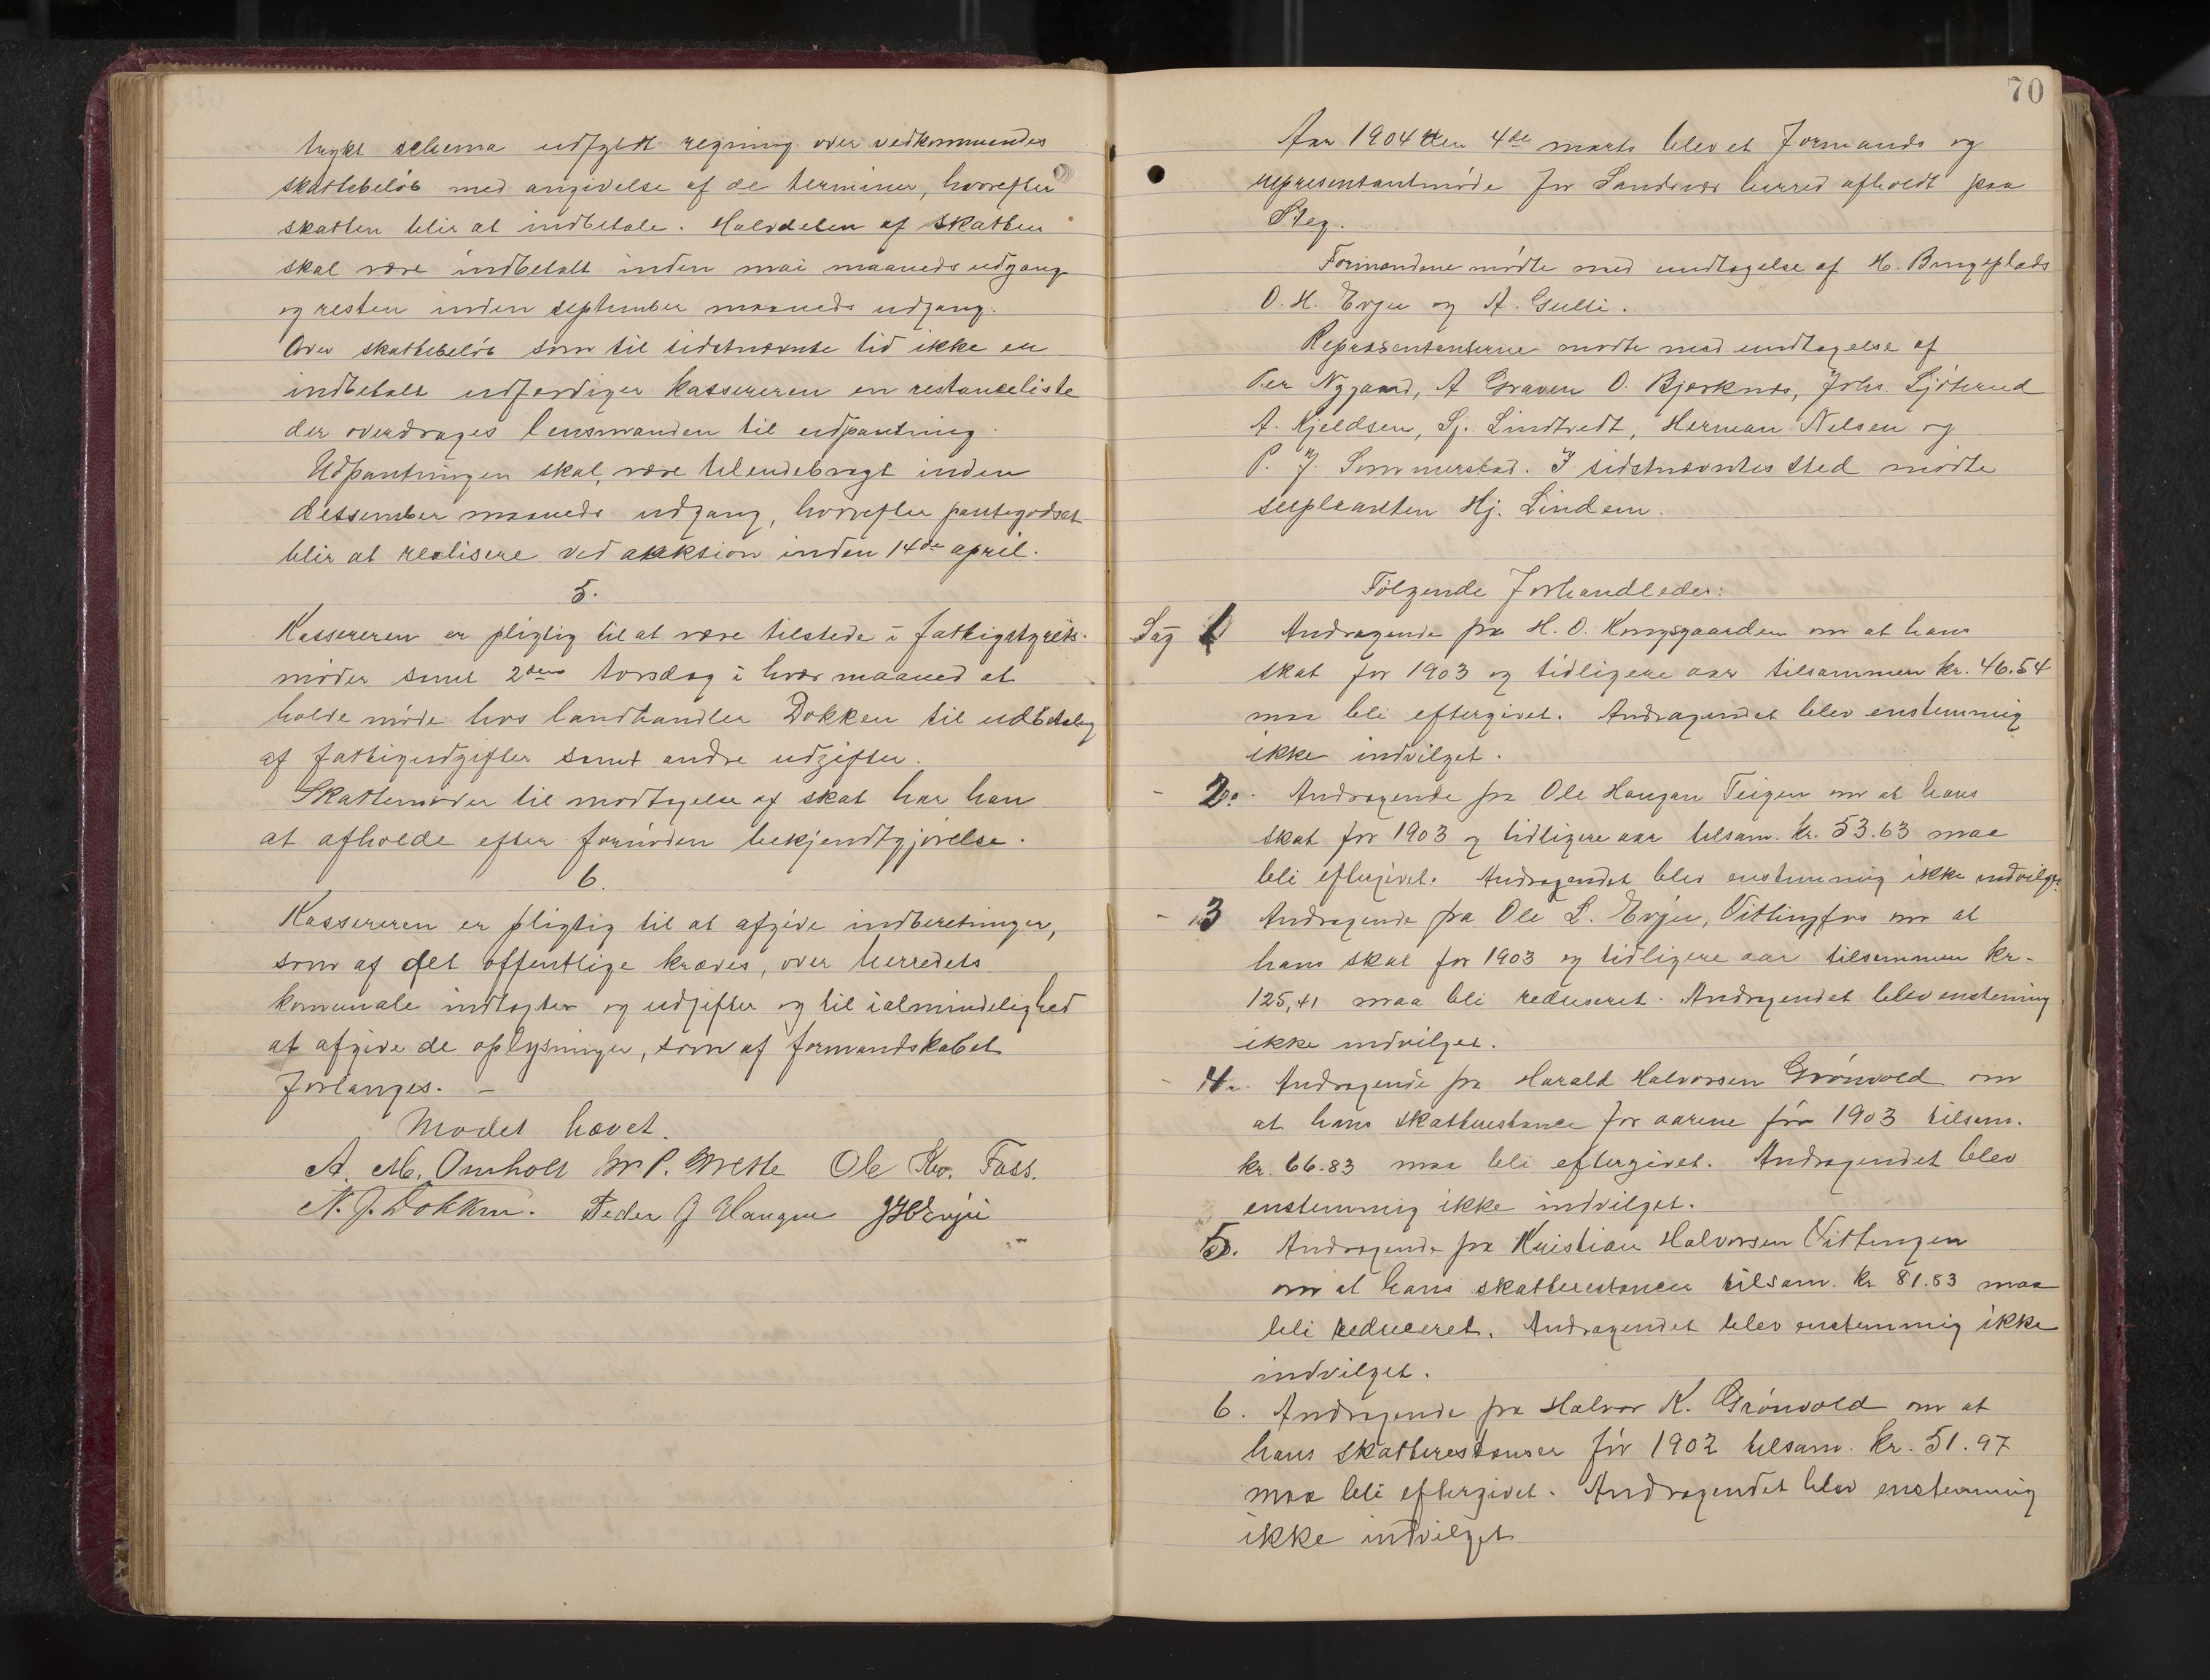 trykt schema udfyldt regning over vedkommendes
skattebeløb med angivelse af de terminer, hvorefter
skatten blir at indbetale. Halvdelen af skatten
skal være indbetalt inden mai maaneds udgang
og resten inden september maaneds udgang.
Over skattebeløb som til sidstnævnte tid ikke er
indbetalt udfærdiger kassereren en restanceliste
der overdrages lensmanden til udpantning.
Udpantningen skal være tilendebragt inden
dessember maaneds udgang, hvorefter pantegodset
blir at realisere ved auktion inden 14de april.
5.
Kassereren er pligtig til at være tilstede i fattigstyrets
møder samt 2den torsdag i hver maaned at
holde møde hos landhandler Dokken til udbetaling
af fattigudgifter samt andre udgifter.
Skattemøder til modtagelse af skat har han
at afholde efter forinøden bekjendtgjørelse.
6.
Kassereren er pligtig til at afgive indberetninger,
som af det offentlige kræves, over herredets
komunale indtægter og udgifter og til ialmindelighed
at afgive de oplysninger, som af formandskabet
forlanges. –
Mødet hævet.
A. M. Omholt P. Ole Kr. Foss.
N. J. Dokken. Peder J Haugen Evju
70
Aar 1904 den 4de marts blev et Formands og
representantmøde for Sandsvær herred afholdt paa
Steg.
Formændene mødte med undtagelse af H. Bingeplads
O. H. Evju og A. Gulli.
Repræsentanterne mødte med undtagelse af
Per Nygaard, A Graven O. Bjørknæs, Johs. Ljøterud
A. Kjeldsen, Sj. Lindtvedt, Herman Nelsen og
P. J. Sommerstad. I sidstnævntes sted mødte
supleanten Hj. Lindem.
Følgende Forhandledes:
Sag 1 Andragende fra H. O. Kongsgaarden om at hans
skat for 1903 og tidligere aar tilsammen kr. 46.54
maa bli eftergivet. Andragendet blev enstemmig
ikke indvilget.
- 2. Andragende fra Ole Haugan Teigen om at hans
skat for 1903 og tidligere aar tilsam. kr. 53.63 maa
bli eftergivet. Andragendet blev enstemmig ikke indvilget.
- 3 Andragende fra Ole L. Evju, Vittingfos om at
hans skat for 1903 og tidligere aar tilsammen kr.
125,41 maa bli reduseret. Andragendet blev enstemig
ikke indvilget.
- 4. Andragende fra Harald Halvorsen Grønvold om
at hans skatterestance for aarene før 1903 tilsam.
kr. 66.83 maa bli eftergivet. Andragendet blev
enstemmig ikke indvilget.
5. Andragende fra Kristian Halvorsen Vittingen
om at hans skatterestancer tilsam. kr 81.83 maa
bli reduceret. Andragendet blev enstemmig ikke
indvilget.
6. Andragende fra Halvor K. Grønvold om at
hans skatterestanser før 1902 tilsam. kr. 51.97
maa bli eftergivet. Andragendet blev enstemmig
ikke indvilget